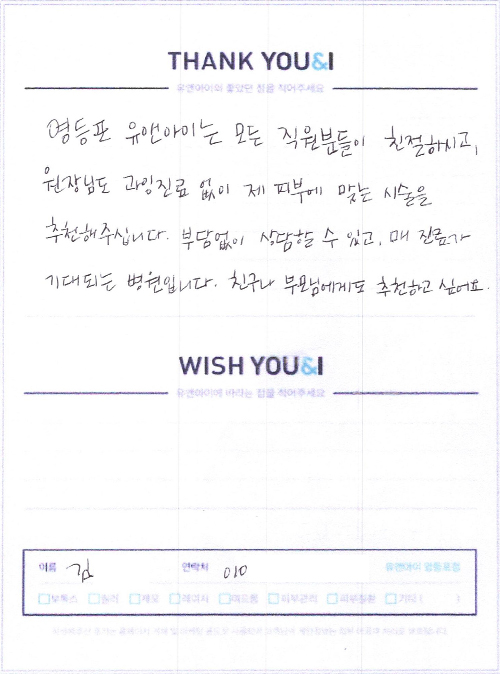 THANK YOU&I
유앤아이의 좋았던 점을 적어주세요
영등포 유앤아이는 모든 직원분들이 친절하시고,
원장님도 과잉진료 없이 제 피부에 맞는 시술을
추천해주십니다. 부담없이 상담할 수 있고, 매 진료가
기대되는 병원입니다. 친구나 부모님에게도 추천하고 싶어요.
WISH YOU&I
유앤아이에 바라는 점을 적어주세요
이름 김 연락처 010 유앤아이 영등포점
보톡스 필러 제모 레이저 여드름 피부관리 피부질환 기타 ( )